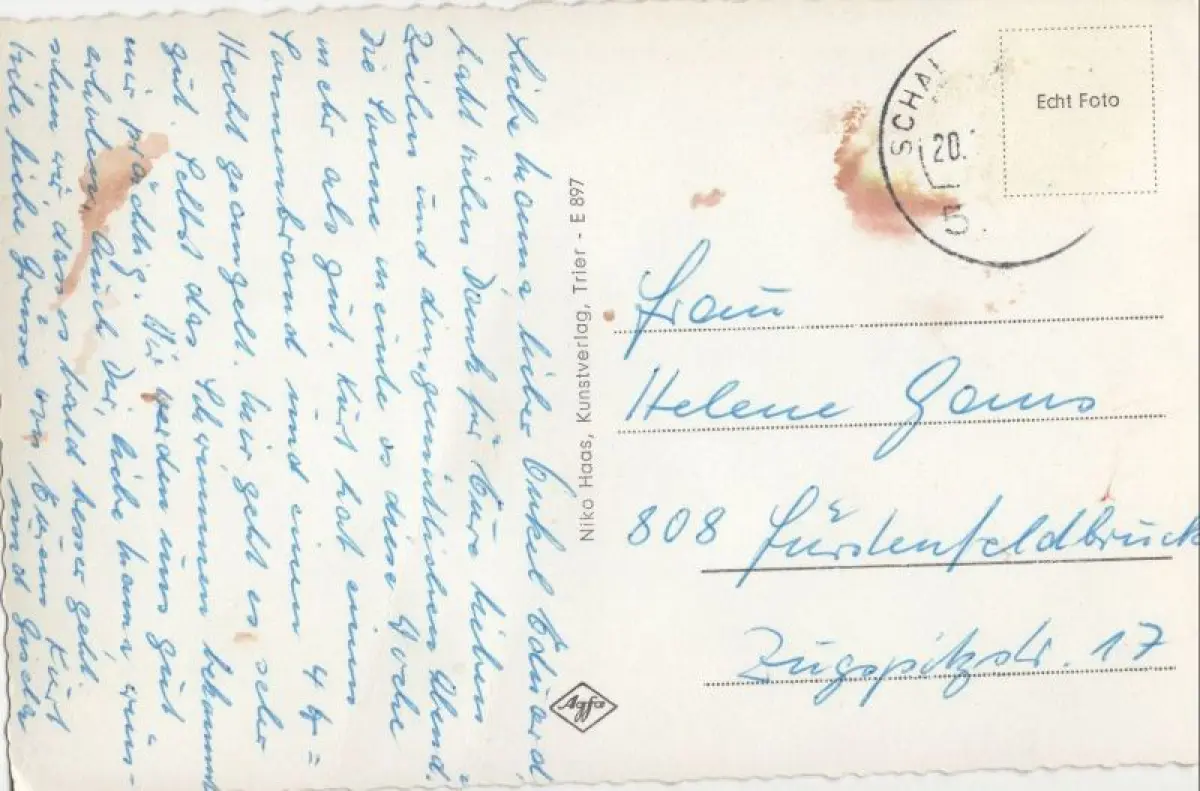 Liebe Mama, lieber Onkel Eduard,
habt vielen Dank für Eure lieben
Zeilen und den gemütlichen Abend.
Die Sonne meinte es diese Woche
mehr als gut. Kurt hat einen
Sonnenbrand und einen 4 ℔ =
Hecht geangelt. Mir geht es sehr
gut. Selbst das Schwimmen bekommt
mir prächtig. Wir werden uns gut
erholen. Auch Dir, liebe Mama, wün-
schen wir, dass es bald besser geht.
Viele liebe Grüsse von Euren Kurt
und Gisela
Niko Haas, Kunstverlag, Trier - E 897
Agfa
SCHAL
20.
5
Echt Foto
Frau
Helene Gams
808 Fürstenfeldbruck
Zugspitzstr. 17